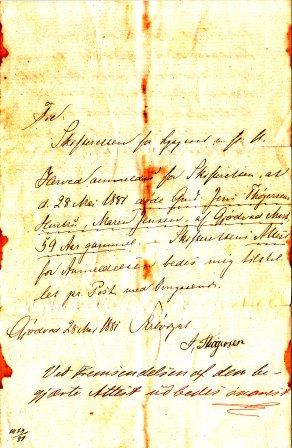 For
Skifteretten for
Herved anmeldes for Skifteretten, at
d. 28 Mai 1881 døde Gmd. Jens Thøgersens
Hustru, Maren Jensen, af Gjødvad Mark,
59 Aar gammel. — Skifterettens Attest
for Anmeldelsen bedes mig tilstil-
let pr Post med
Gjødvad 28 Mai 1881 Ærbødigst
J. Thøgersen
Ved Fremsendelsen af den be-
gjærte Attest udbedes snarest